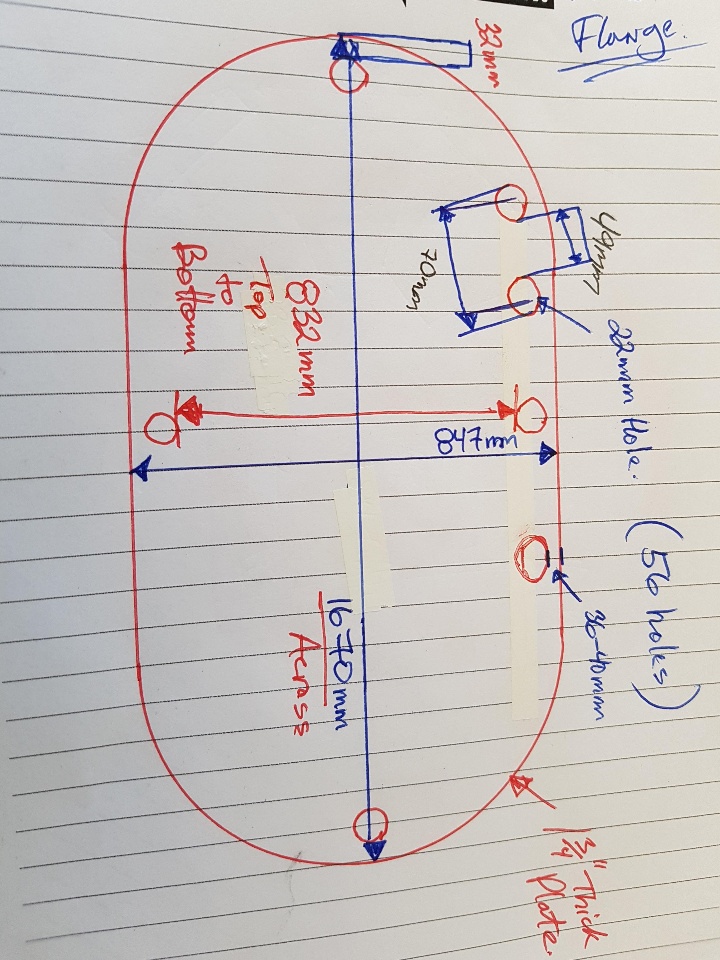 Flange.
32mm
49mm
70mm
22mm Hole.
(56 holes)
832mm
Top
to
Bottom
847mm
36-40mm
1670mm
Across
1 3/4" Thick
Plate.